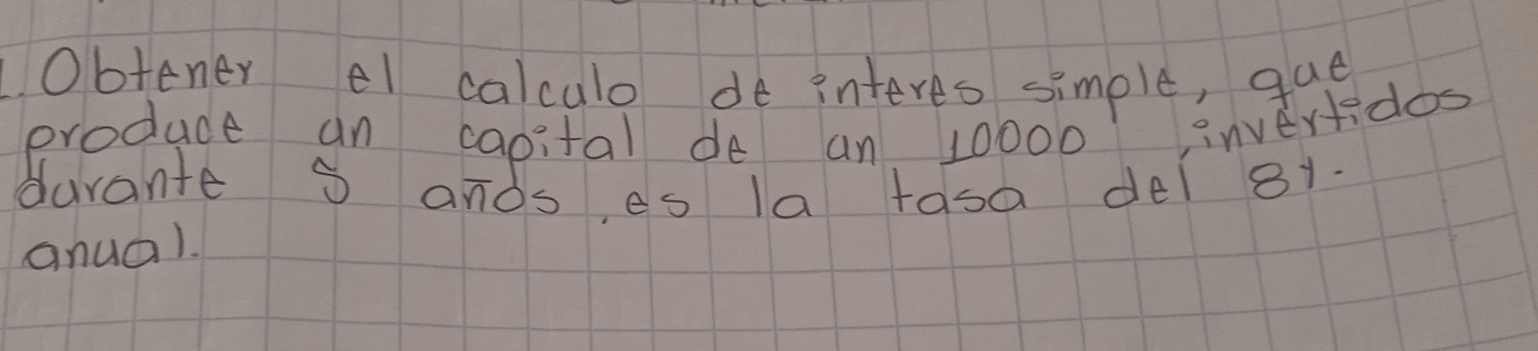 1. Obtener el calculo de interes simple, que
produce un capital de un 10000, invertidos
durante 5 años, es la tasa del 8%.
anual.